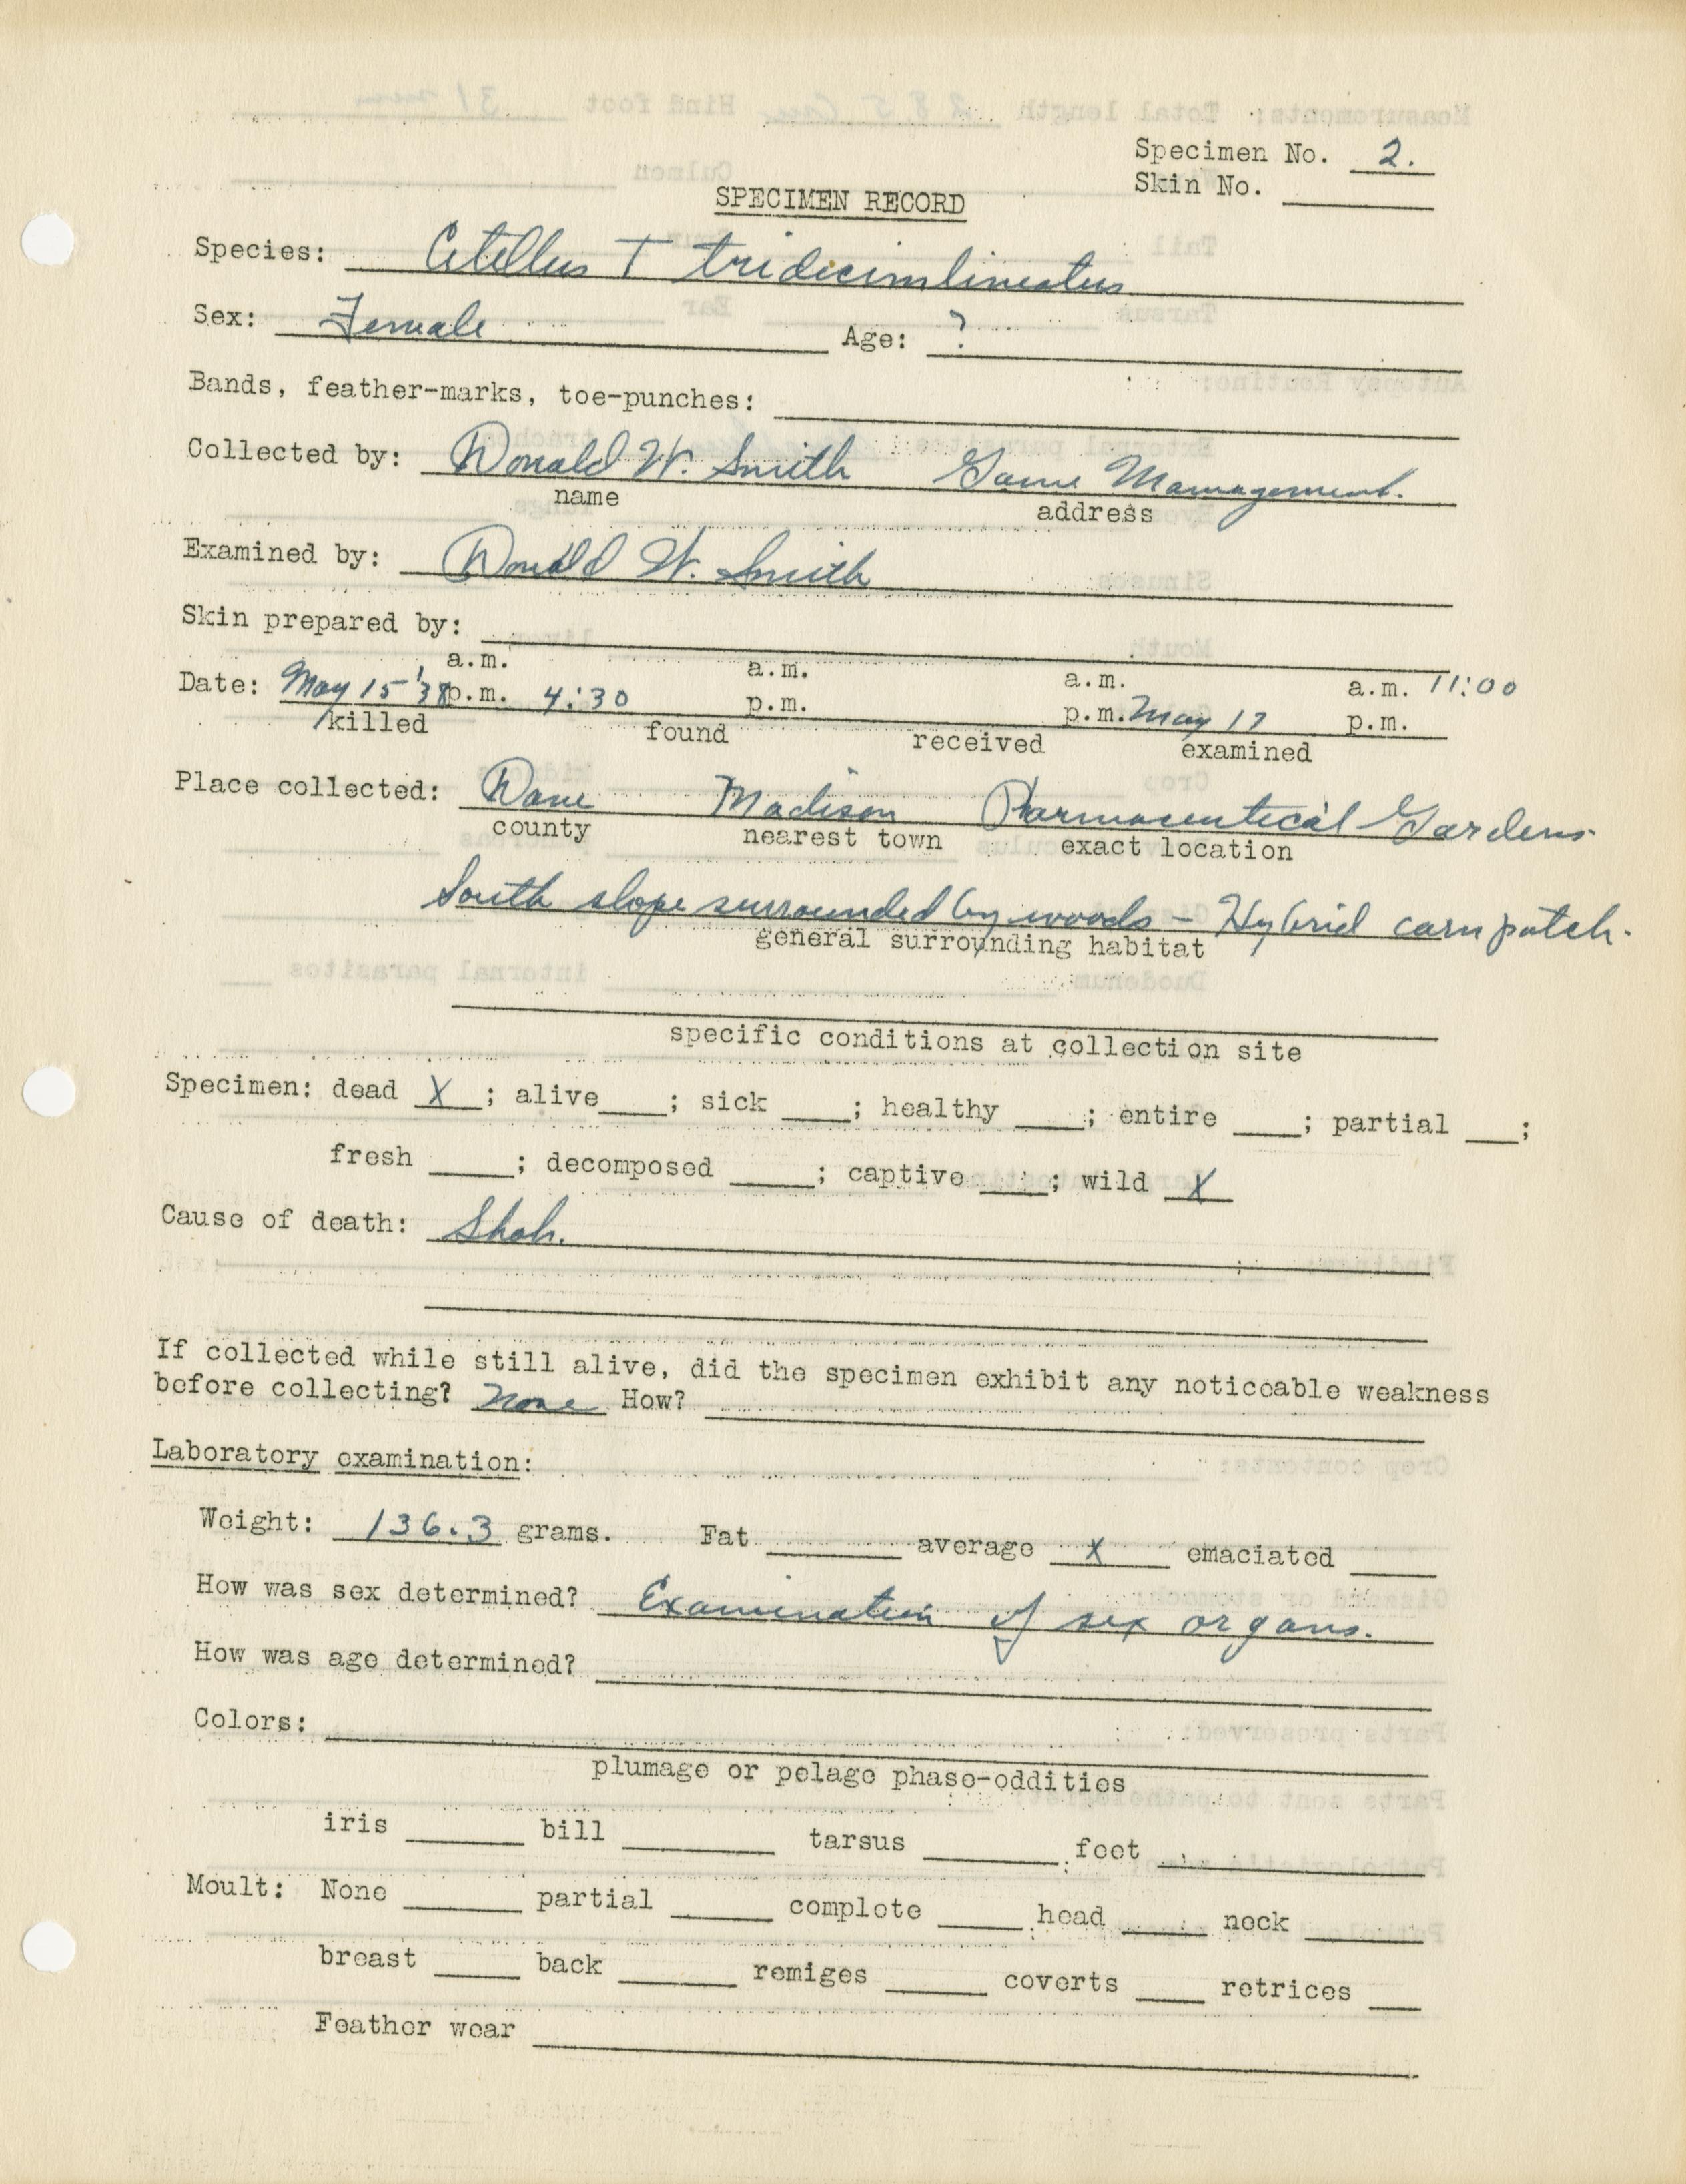 Specimen No. 2.
Skin No.
SPECIMEN RECORD
Species: Citellus T tridecimlineatus
Sex: Female Age: ?
Bands, feather-marks, toe-punches:
Collected by: Donald W. Smith Game Management.
name address
Examined by: Donald W. Smith
Skin prepared by:
a.m. a.m. a.m. a.m. 11:00
Date: May 15 '38 p.m. 4:30 p.m. p.m. May 17 p.m.
killed found received examined
Place collected: Dane Madison Pharmaceutical Gardens
county nearest town exact location
South slope surrounded by woods - Hybrid corn patch.
general surrounding habitat
specific conditions at collection site
Specimen: dead X ; alive ; sick ; healthy ; entire ; partial ;
fresh ; decomposed ; captive ; wild X
Cause of death: Shot.
If collected while still alive, did the specimen exhibit any noticeable weakness
before collecting? None How?
Laboratory examination:
Weight: 136.3 grams. Fat average X emaciated
How was sex determined? Examination of sex organs.
How was age determined?
Colors:
plumage or pelage phase-oddities
iris bill tarsus foot
Moult: None partial complete head neck
breast back remiges coverts retrices
Feather wear